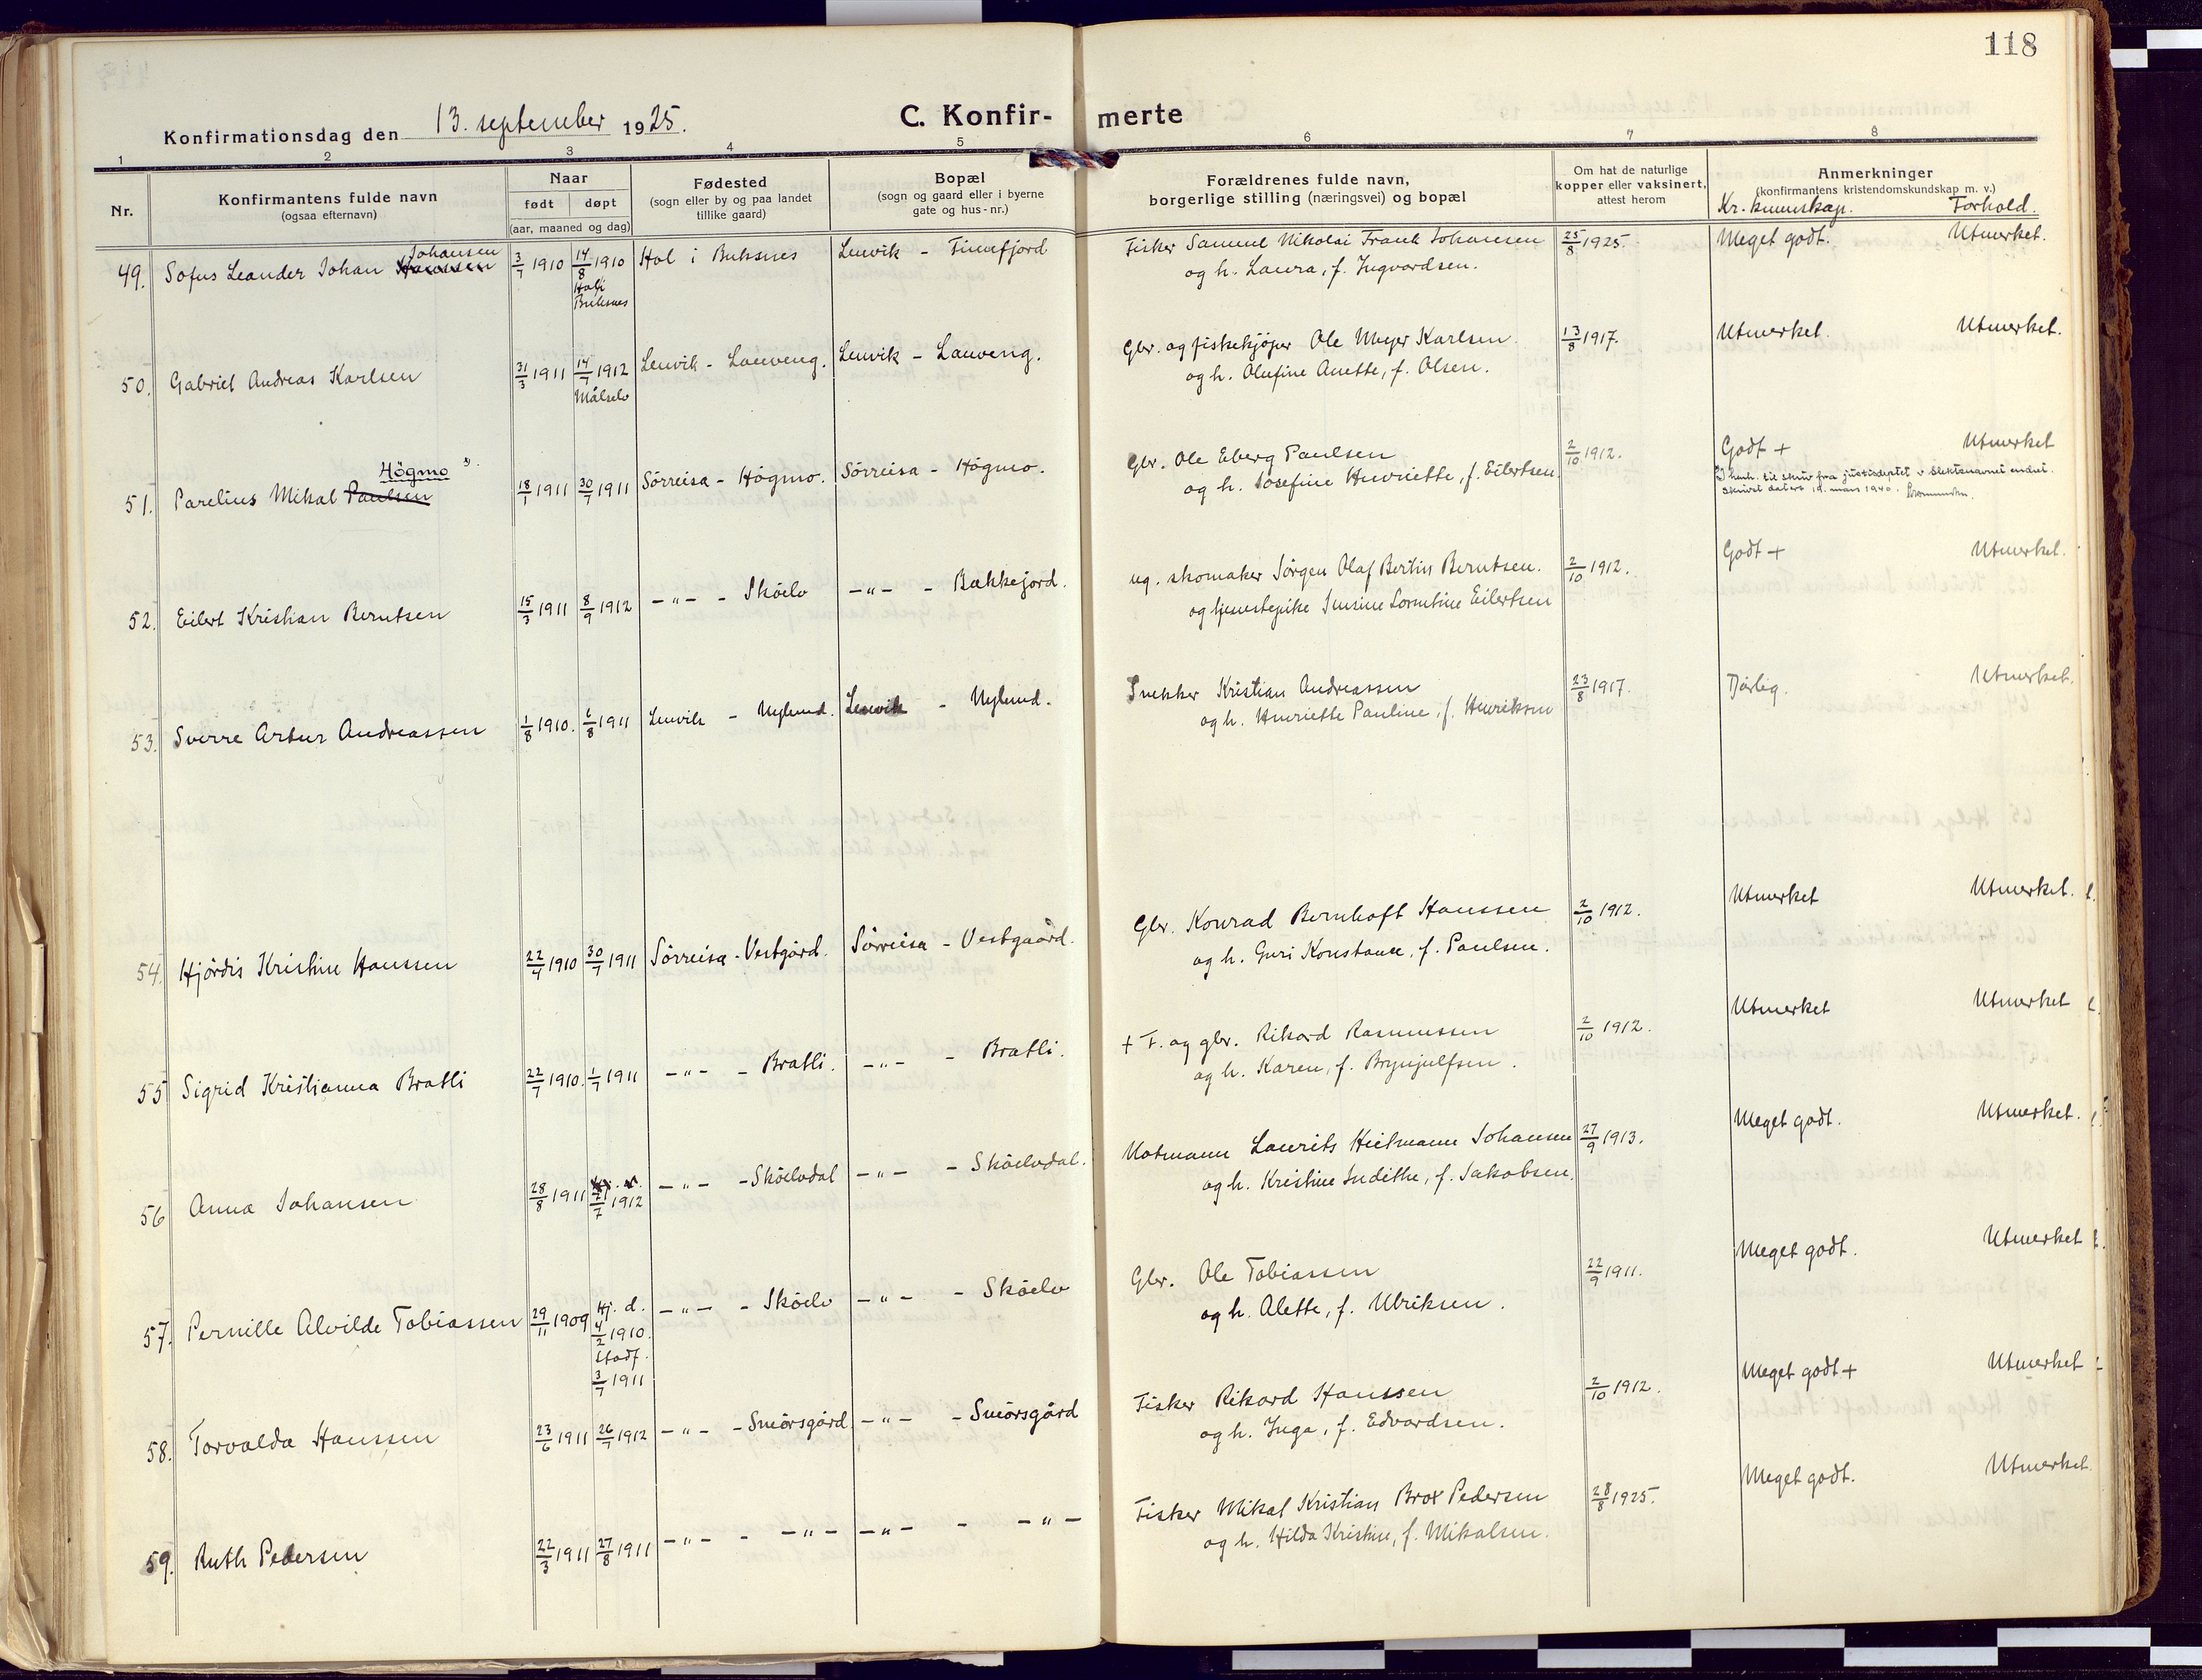 118
Konfirmationsdag den 13. september 1925.
C. Konfir- merte
1 2 3 4 5 6 7 8
Nr.
Konfirmantens fulde navn
(ogsaa efternavn)
Naar
født døpt
(aar, maaned og dag)
Fødested
(sogn eller by og paa landet
tillike gaard)
Bopæl
(sogn og gaard eller i byerne
gate og hus-nr.)
Forældrenes fulde navn,
borgerlige stilling (næringsvei) og bopæl
Om hat de naturlige
kopper eller vaksinert,
attest herom
Anmerkninger
(konfirmantens kristendomskundskap m. v.)
Kr.kunnskap. Forhold.
Johansen
49. Sofus Leander Johan Hanssen 3/7 1910 14/8 1910 Hol i Buksnes Lenvik - Finnfjord Fisker Samuel Nikolai Frank Johansen 25/8 1925. Meget godt. Utmerket.
Hol i
Buksnes
og h. Laura, f. Ingvardsen.
50. Gabriel Andreas Karlsen 31/3 1911 14/7 1912 Lenvik - Lauveng. Lenvik - Lauveng. Gbr. og fiskekjøper Ole Meyer Karlsen 13/8 1917. Utmerket. Utmerket.
Målselv
og h. Olufine Anette, f. Olsen.
Högmo x).
51. Parelius Mikal Paulsen 18/1 1911 30/7 1911 Sörreisa - Högmo. Sörreisa - Högmo. Gbr. Ole Eberg Paulsen 2/10 1912. Godt + Utmerket
og h. Josefine Henriette, f. Eilertsen
x) I henh. til skriv fra justisdeptet er slektsnavnet endret.
Skrivet datert 19. mars 1940.
52. Eilert Kristian Berntsen 15/3 1911 8/9 1912 -"- - Sköelv -"- - Bakkejord. ug. skomaker Jörgen Olaf Bertin Berntsen. 2/10 1912. Godt + Utmerket.
og tjenestepike Jensine Lorentine Eilertsen
53. Sverre Artur Andreassen 1/8 1910. 6/8 1911 Lenvik - Nylund. Lenvik - Nylund. Snekker Kristian Andreassen 23/8 1917. Dårlig. Utmerket.
og h. Henriette Pauline, f. Henriksen
54. Hjördis Kristine Hanssen 22/4 1910 30/7 1911 Sörreisa - Vestgård. Sörreisa - Vestgaard. Gbr. Konrad Bernhoft Hanssen 2/10 1912. Utmerket Utmerket.
og h. Guri Konstanse, f. Paulsen.
55 Sigrid Kristianna Bratli 22/7 1910. 1/7 1911 -"- - Bratli. -"- - Bratli. + F. og gbr. Rikard Rasmussen 2/10 1912. Utmerket Utmerket
og h. Karen, f. Brynjulfsen.
56 Anna Johansen 28/8 1911 21/7 1912 -"- - Sköelvdal -"- - Sköelvdal. Notmann Laurits Heitmann Johansen 27/9 1913. Meget godt. Utmerket.
og h. Kristine Judithe, f. Jakobsen.
57. Pernille Alvilde Tobiassen 29/11 1909 Hj. d. 4/2 1910. -"- - Sköelv -"- - Sköelv Gbr. Ole Tobiassen 22/9 1911. Meget godt. Utmerket
Stadf.
3/7 1911
og h. Alette, f. Ulriksen.
58. Torvalda Hanssen 23/6 1911 26/7 1912 -"- - Smörsgård -"- - Smörsgård Fisker Rikard Hanssen 2/10 1912. Meget godt + Utmerket
og h. Inga, f. Edvardsen.
59. Ruth Pedersen 22/3 1911 27/8 1911 -"- - -"- -"- - -"- Fisker Mikal Kristian Brox Pedersen 28/8 1925. Meget godt. Utmerket.
og h. Hilda Kristine, f. Mikalsen.